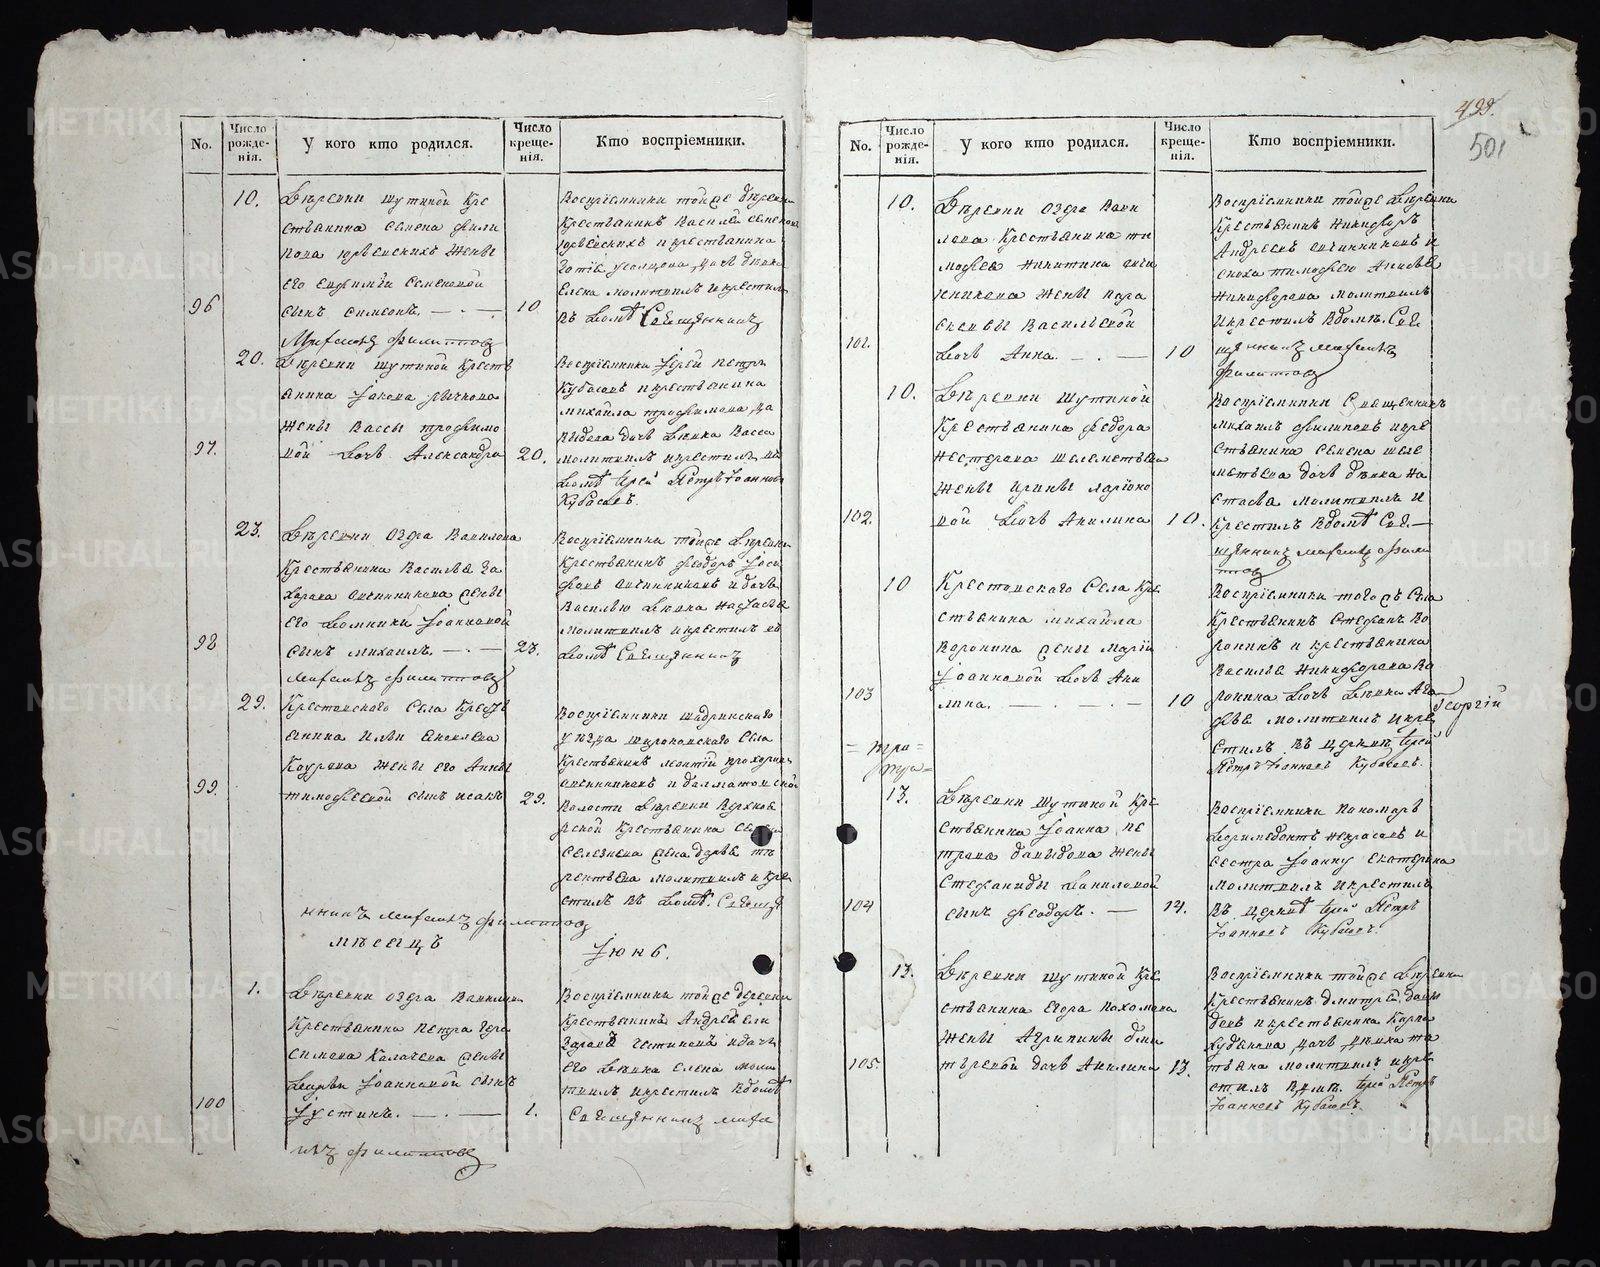 No.
Число рожде- нія.
У кого кто родился.
Число креще- нія.
Кто воспріемники.
10.
Деревни Шутиной Кре
стьянина Семена Фили
пова Юрьевских жены
его Евфимiи Семеновой
96
сынъ Симеонъ. — . —
10
Воспріемники той же деревни
Крестьянинъ Василей Семенов
Юрьевскихъ и крестьянина
дочь девка
Елена молитвилъ и крестилъ
въ домѣ Священникъ
Михаилъ Филипповъ
20.
Деревни Шутиной Кресть
янина Iакова Рычкова
жены Вассы Трофимо
97.
вой дочь Александра
20.
Воспріемники Iерей Петръ
Кубасовъ и крестьянина
Михайла Трофимова Да
выдова дочь девка Васса
молитвилъ и крестилъ въ
домѣ Iерей Петръ Iоанновъ
Кубасовъ.
23.
Деревни Озера Вавилова
Крестьянина Василья За
харова Овчинникова жены
его Домники Iоанновой
98
сынъ Михаилъ. — . —
23.
Воспріемники той же деревни
Крестьянинъ Феодоръ Iоси
фовъ Овчинниковъ и дочь
Василью девка Настасья
молитвилъ и крестилъ въ
домѣ Священникъ
Михаилъ Филипповъ
29.
Крестовского Села Кресть
янина Ильи Яковлева
жены его Анны
99.
Тимофеевой сынъ Исакъ
29.
Воспріемники Шадринского
уезда Широковского Села
Крестьянинъ Леонтiй Прохоровъ
Овчинниковъ и Далматовской
Волости деревни
рской Крестьянина
Селезнева жена Дарья Те
рентьева молитвилъ и кре
стилъ въ домѣ Священ
нникъ Михаилъ Филипповъ
Месецъ
Iюнь.
1.
Деревни Озера Вавилова
Крестьянина Петра Гера
симова Калачева жены
Дарьи Iоанновой сынъ
100
Iустинъ. — . —
1.
Воспріемники той же деревни
Крестьянинъ Андрей Ели
и дочь
его девка Елена моли
твилъ и крестилъ въ домѣ
Священникъ Миха
илъ Филипповъ
499.
501
No.
Число рожде- нія.
У кого кто родился.
Число креще- нія.
Кто воспріемники.
10.
Деревни Озера Вави
лова Крестьянина Ти
мофея Никитина Овчи
нникова жены Пара
скевы Васильевой
101.
дочь Анна. — . —
10
Воспріемники той же деревни
Крестьянинъ Никифоръ
Андреевъ Овчинниковъ и
сноха Тимофею Анисья
Никифорова молитвилъ
и крестилъ въ домѣ Свя
щенникъ Михаилъ
Филипповъ
10.
Деревни Шутиной
Крестьянина Федора
Нестерова Шелеметьева
жены Ирины Ларiоно
102.
вой дочь Акилина
10.
Воспріемники Священникъ
Михаилъ Филиповъ и кре
стьянина Семена Шеле
метьева дочь девка На
стасья молитвилъ и
крестилъ въ домѣ Свя—
щенникъ Михаилъ Фили
повъ
10
Крестовского Села Кре
стьянина Михайла
Воронина жены Марiи
Iоанновой дочь Аки
103
лина. — . — . —
10
Воспріемники того жъ Села
Крестьянинъ Стефанъ Во
ронинъ и крестьянина
Василья Никифорова Во
ронина дочь девка Ага
фья молитвилъ и кре
стилъ въ церкви Iерей
Петръ Iоанновъ Кубасовъ.
Георгiй
13.
Деревни Шутиной Кре
стьянина Iоанна Пе
трова Давыдова жены
Стефаниды Даниловой
104
сынъ Феодоръ. —
14.
Воспріемники Пономарь
Некрасовъ и
сестра Iоанну Екатерина
молитвилъ и крестилъ
въ церквѣ Iерей Петръ
Iоанновъ Кубасовъ.
13.
Деревни Шутиной Кре
стьянина Егора Пахомова
жены Агрипины Дми
105.
трiевой дочь Акилина
13.
Воспріемники той же деревни
Крестьянинъ Дмитрей Давы
довъ и крестьянина Карпа
дочь девка Та
тьяна молитвилъ и кре
стилъ Iерей Петръ
Iоанновъ Кубасовъ.